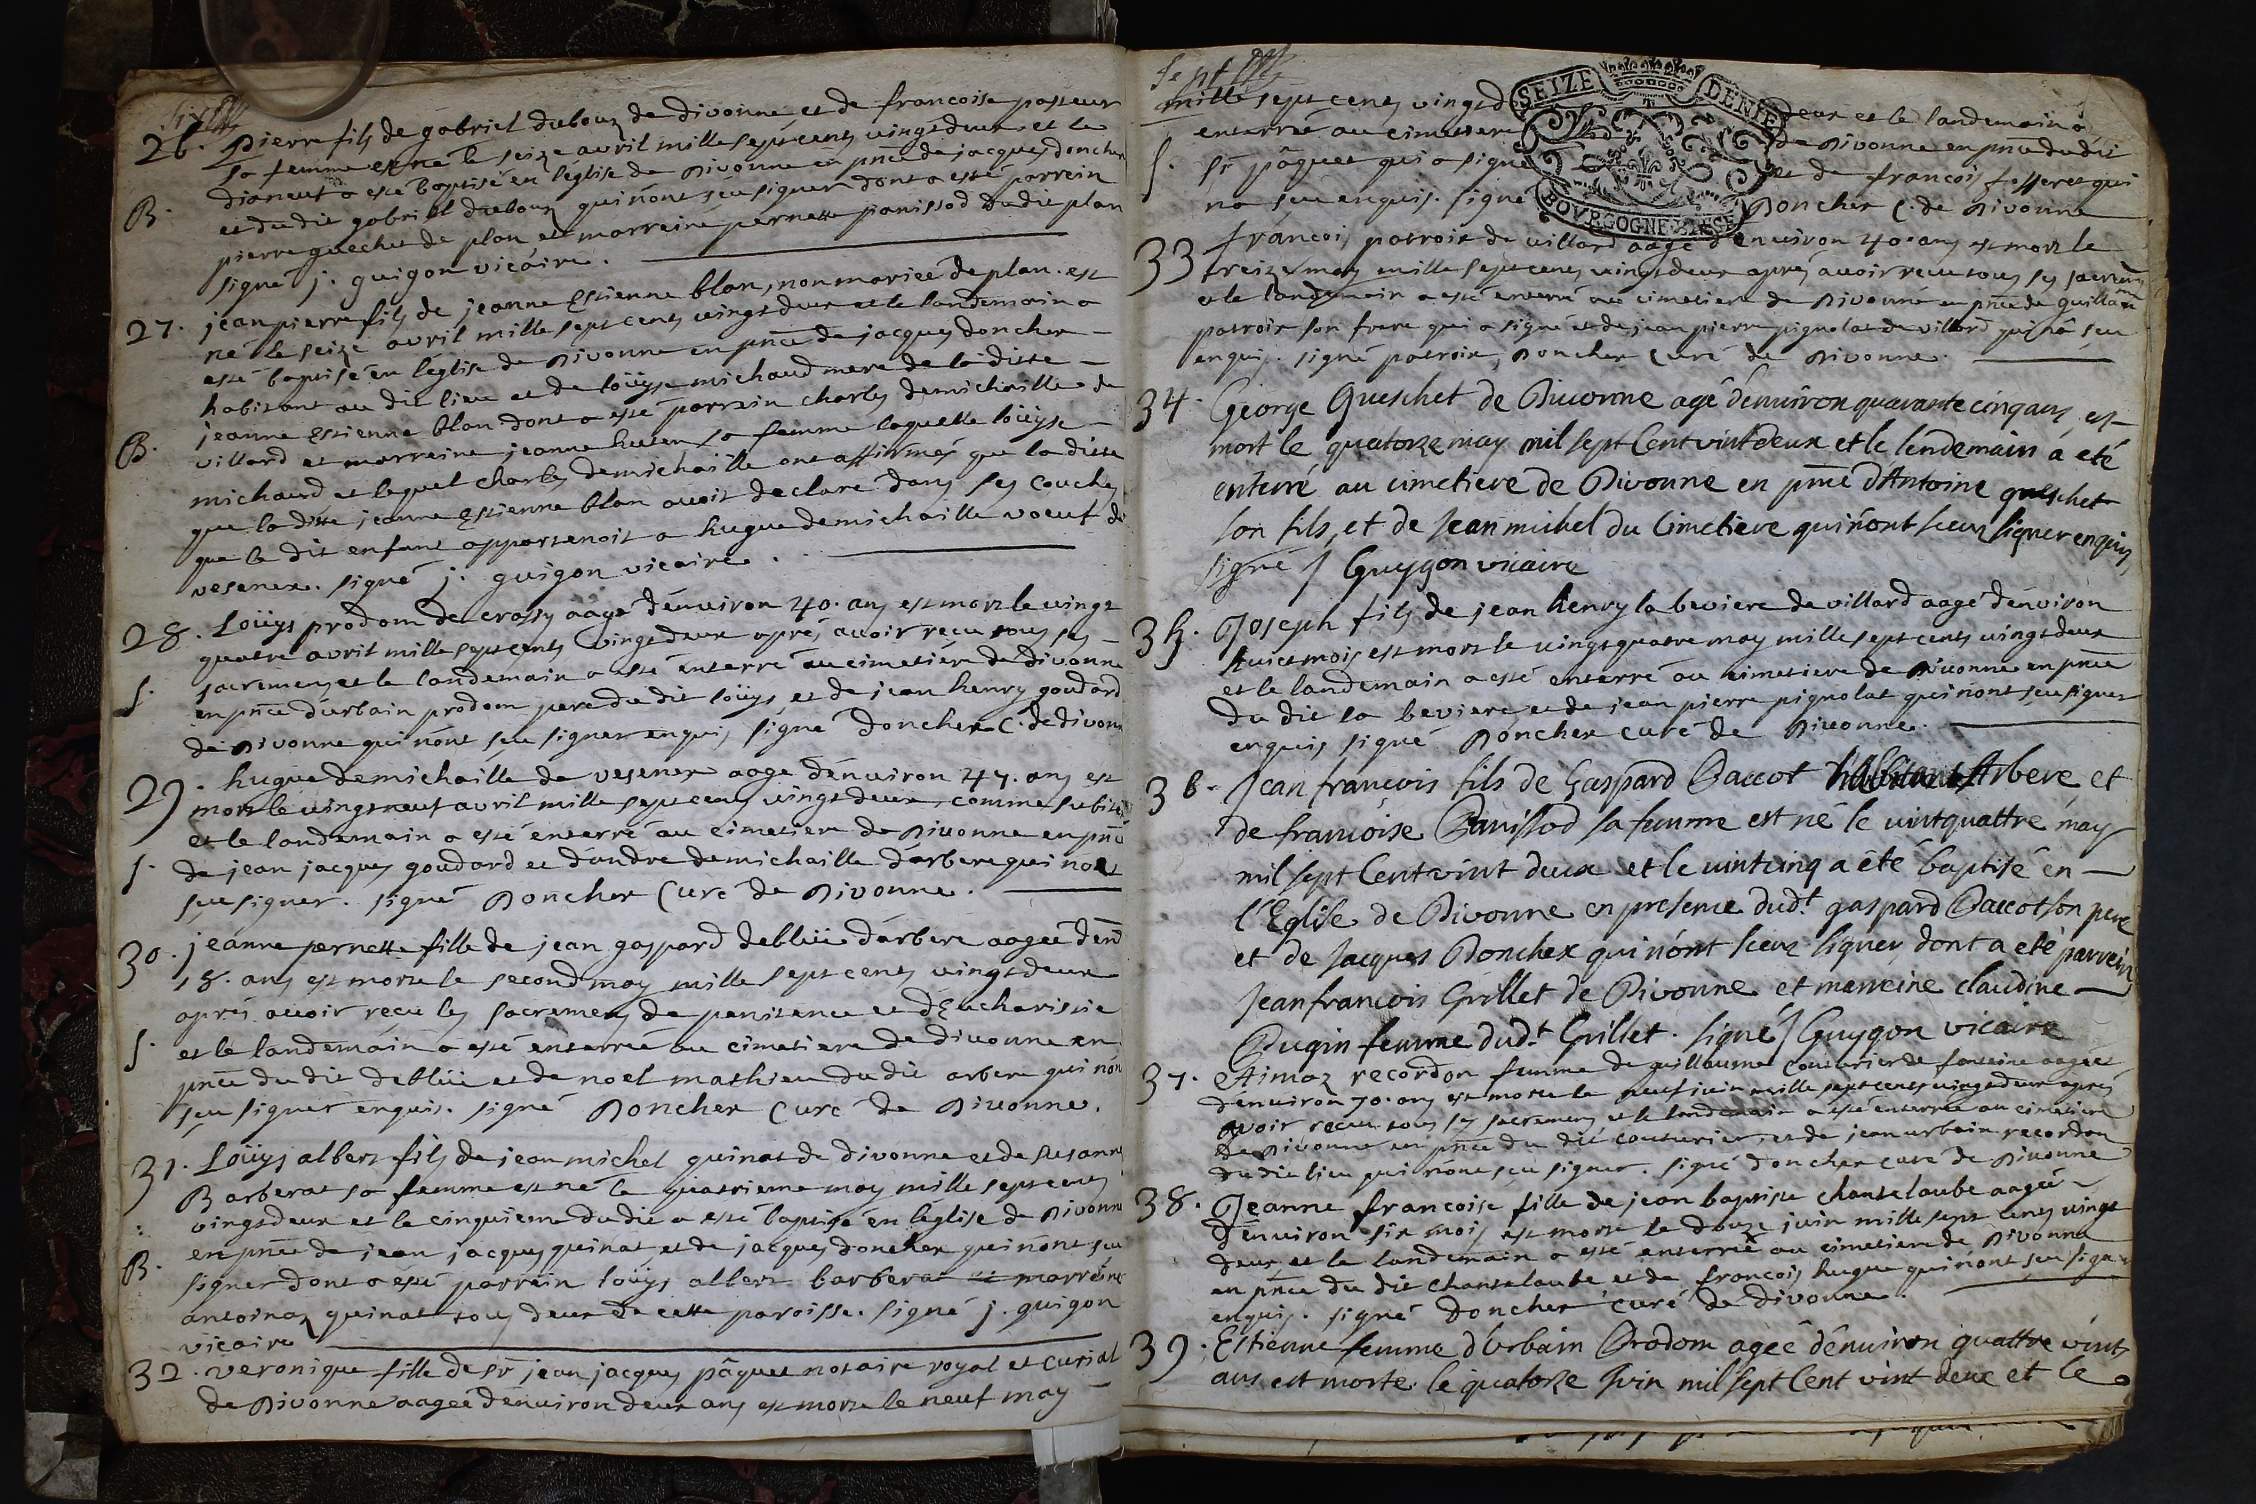 six
26. Pierre fils de gabriel dubouz de divonne et de francoise pasteur
sa femme est né le seize avril mille sept cents vingt deux et le
dixneuf a esté baptisé en l'église de Divonne en pnce de jacques doncher
et du dit gabriel dubouz qui n'ont sçeu signer dont a esté parrein
B. pierre gueschet de plan et marreine pernette panissod du dit plan
signé j. guigon vicaire.
27. jean pierre fils de jeanne Estienne blan, non mariée de plan. est
né le seize avril mille sept cents vingt deux et le landemain a
esté baptisé en l'église de Divonne en pnce de jacques doncher
habitant au dit lieu et de loüyse michaud mere de la ditte
jeanne Estienne blan dont a esté parrein charles demichaille de
B. villard et marreine jeanne sa femme laquelle loüyse
michaud et lequel charles demichaille ont affirmés que la ditte
que la ditte jeanne Estienne blan avoit declaré dans ses couches
que le dit enfant appartenoit a hugue demichaille voeuf de
vesenex. signé j. guigon vicaire.
28. Loüys prodom de crassy aagé d'environ 40. ans est mort le vingt
quatre avril mille sept cents vingt deux après avoir reçu tous ses
S. sacremens et le landemain a esté enterré au cimetiere de divonne
en pnce d'urbain prodom pere du dit loüys, et de jean henry goudard
de Divonne qui n'ont sçeu signer enquis, signé Doncher C. de divonne
29. hugue demichaille de vesenex aagé d'environ 47. ans est
mort le vingt neuf avril mille sept cens vingt deux, comme subite
et le landemain a esté enterré au cimetiere de Divonne en pnce
S. de jean jacques goudard et d'andre demichaille d'arbere qui n'ont
sçeu signer. signé Doncher Curé de Divonne.
30. jeanne pernette fille de jean gaspard deblüe d'arbere aagée d'en
18. ans est morte le second may mille sept cents vingt deux
après avoir reçu les sacremens de penitence et d'Eucharistie
S. et le landemain a esté enterrée au cimetiere de divonne en
pnce du dit deblüe et de noel mathieu du dit arbere qui n'ont
sçeu signer enquis. signé Doncher Curé de Divonne.
31. Loüys albert fils de jean michel quinat de divonne et de susanne
Barberat sa femme est né le quatrieme may mille sept cents
vingt deux et le cinquieme du dit a esté baptisé en l'eglise de Divonne
B. en pnce de jean jacques quinat et de jacques doncher qui n'ont sçeu
signer dont a esté parrein loüys albert barberat et marreine
antoinaz quinat tous deux de cette paroisse. signé j. guigon
vicaire
32. veronique fille de sr jean jacques pâquet notaire royal et curial
de Divonne aagée d'environ deux ans est morte le neuf may
Sept
mille sept cents vingt d deux et le landemain a
enterré au cimetiere de Divonne en pnce du dit
S. sr pâquet qui a signé et de francois tisseret qui
na sçeu enquis. signé Doncher C. de Divonne
SEIZE DENIER
BOVRGOGNE BRESSE
33 francois patroix de villard aagé d'environ 40. ans est mort le
treize may mille sept cents vingt deux après avoir reçu tous ses sacremens
et le landemain a esté enterré au cimetiere de Divonne en pnce de guillame
patroix son frere qui a signé et de jean pierre pignolat de villard qui n'a sçeu
enquis. signé patroix, Doncher Curé de Divonne.
34. George Queschet de Divonne agé d'environ quarante cinq ans, est
mort le quatorze may mil sept Cent vint deux et le lendemain a eté
enterré au cimetiere de Divonne en pnce d'Antoine queschet
son fils, et de Jean michel du Cimetiere qui n'ont sceus signer enquis,
signé / Guygon vicaire
35. Joseph fils de jean henry la beviere de villard aagé d'environ
huict mois est mort le vingt quatre may mille sept cents vingt deux
et le landemain a esté enterré au cimetiere de Divonne en pnce
du dit la beviere, et de jean pierre pignolat qui n'ont sçeu signer
enquis, signé Doncher curé de Divonne.
36. Jean francois fils de Gaspard Baccot habitant Arbere et
de francoise Panissod sa femme est né le vint quattre may
mil sept Cent vint deux et le vint cinq a été baptisé en
l'Eglise de Divonne en presence dud.t gaspard Baccot son pere
et de Jacques Doncher qui n'ont sceus signer, dont a eté parrein
Jean francois Grillet de Divonne et marreine claudine
Pugin femme dud.t Grillet. signé / Guygon vicaire
37. Aimaz recordon femme de guillaume Couturier de fonteine aagée
d'environ 70. ans est morte le neuf juin mille sept cents vingt deux après
avoir reçeu tous ses sacremens et le landemain a esté enterrée au cimetiere
de Divonne en pnce du dit couturier, et de jean urbain recordon
du dit lieu qui n'ont sçeu signer. signé doncher curé de Divonne
38. Jeanne francoise fille de jean baptiste chantelaube aagée
d'environ six mois est morte le douze juin mille sept cents vingt
deux et le landemain a esté enterrée au cimetiere de Divonne
en pnce du dit chantelaube et de francois hugue qui n'ont sçeu signer
enquis. signé Doncher curé de divonne.
39. Estienne femme d'Urbain Prodom agée d'environ quattre vints
ans est morte le quatorze Juin mil sept Cent vint deux et le